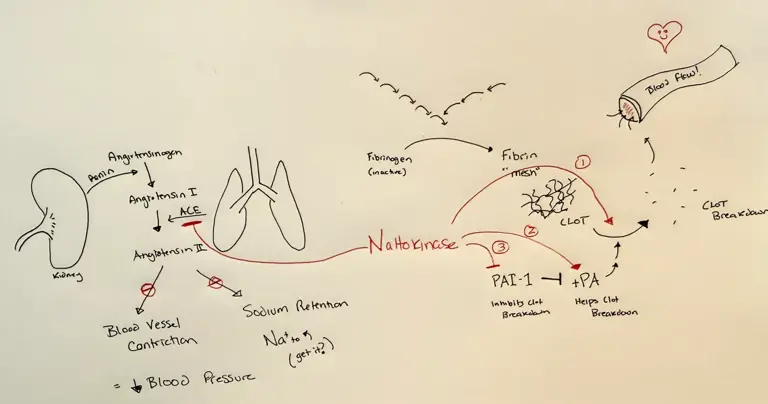 Blood Flow!
Fibrinogen
(inactive)
Fibrin
"mesh"
①
CLOT
CLOT
Breakdown
Renin
Angiotensinogen
Angiotensin I
ACE
Angiotensin II
Kidney
Nattokinase
②
③
PAI-1
Inhibits Clot
Breakdown
tPA
Helps Clot
Breakdown
Blood Vessel
Contriction
Sodium Retention
Na⁺ to
(get it?)
= ↓ Blood Pressure